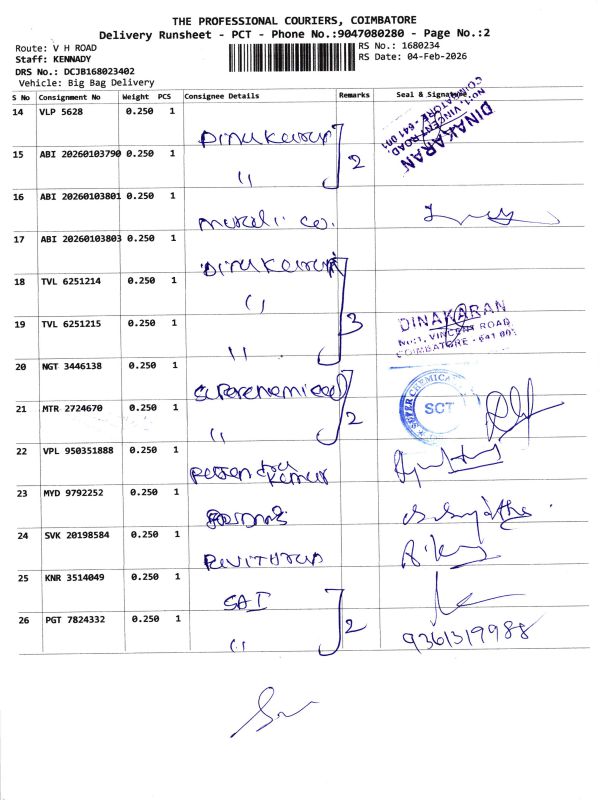 THE PROFESSIONAL COURIERS, COIMBATORE
Delivery Runsheet - PCT - Phone No.:9047080280 - Page No.:2
Route: V H ROAD
RS No.: 1680234
Staff: KENNADY
RS Date: 04-Feb-2026
DRS No.: DCJB168023402
Vehicle: Big Bag Delivery
S No Consignment No Weight PCS Consignee Details Remarks Seal & Signature
14 VLP 5628 0.250 1 Dinakaran
DINAKARAN
No:1, VINCENT ROAD,
COIMBATORE - 641 001
15 ABI 20260103790 0.250 1 " 2
16 ABI 20260103801 0.250 1 murali co.
17 ABI 20260103803 0.250 1 Dinakaran
18 TVL 6251214 0.250 1 "
19 TVL 6251215 0.250 1 " 3
DINAKARAN
No:1, VINCENT ROAD,
COIMBATORE - 641 001
20 NGT 3446138 0.250 1 superchemical
SUPER CHEMICA
SCT
21 MTR 2724670 0.250 1 " 2
22 VPL 950351888 0.250 1 kumar
23 MYD 9792252 0.250 1
24 SVK 20198584 0.250 1
25 KNR 3514049 0.250 1 SAI
26 PGT 7824332 0.250 1 " 2 9361319988